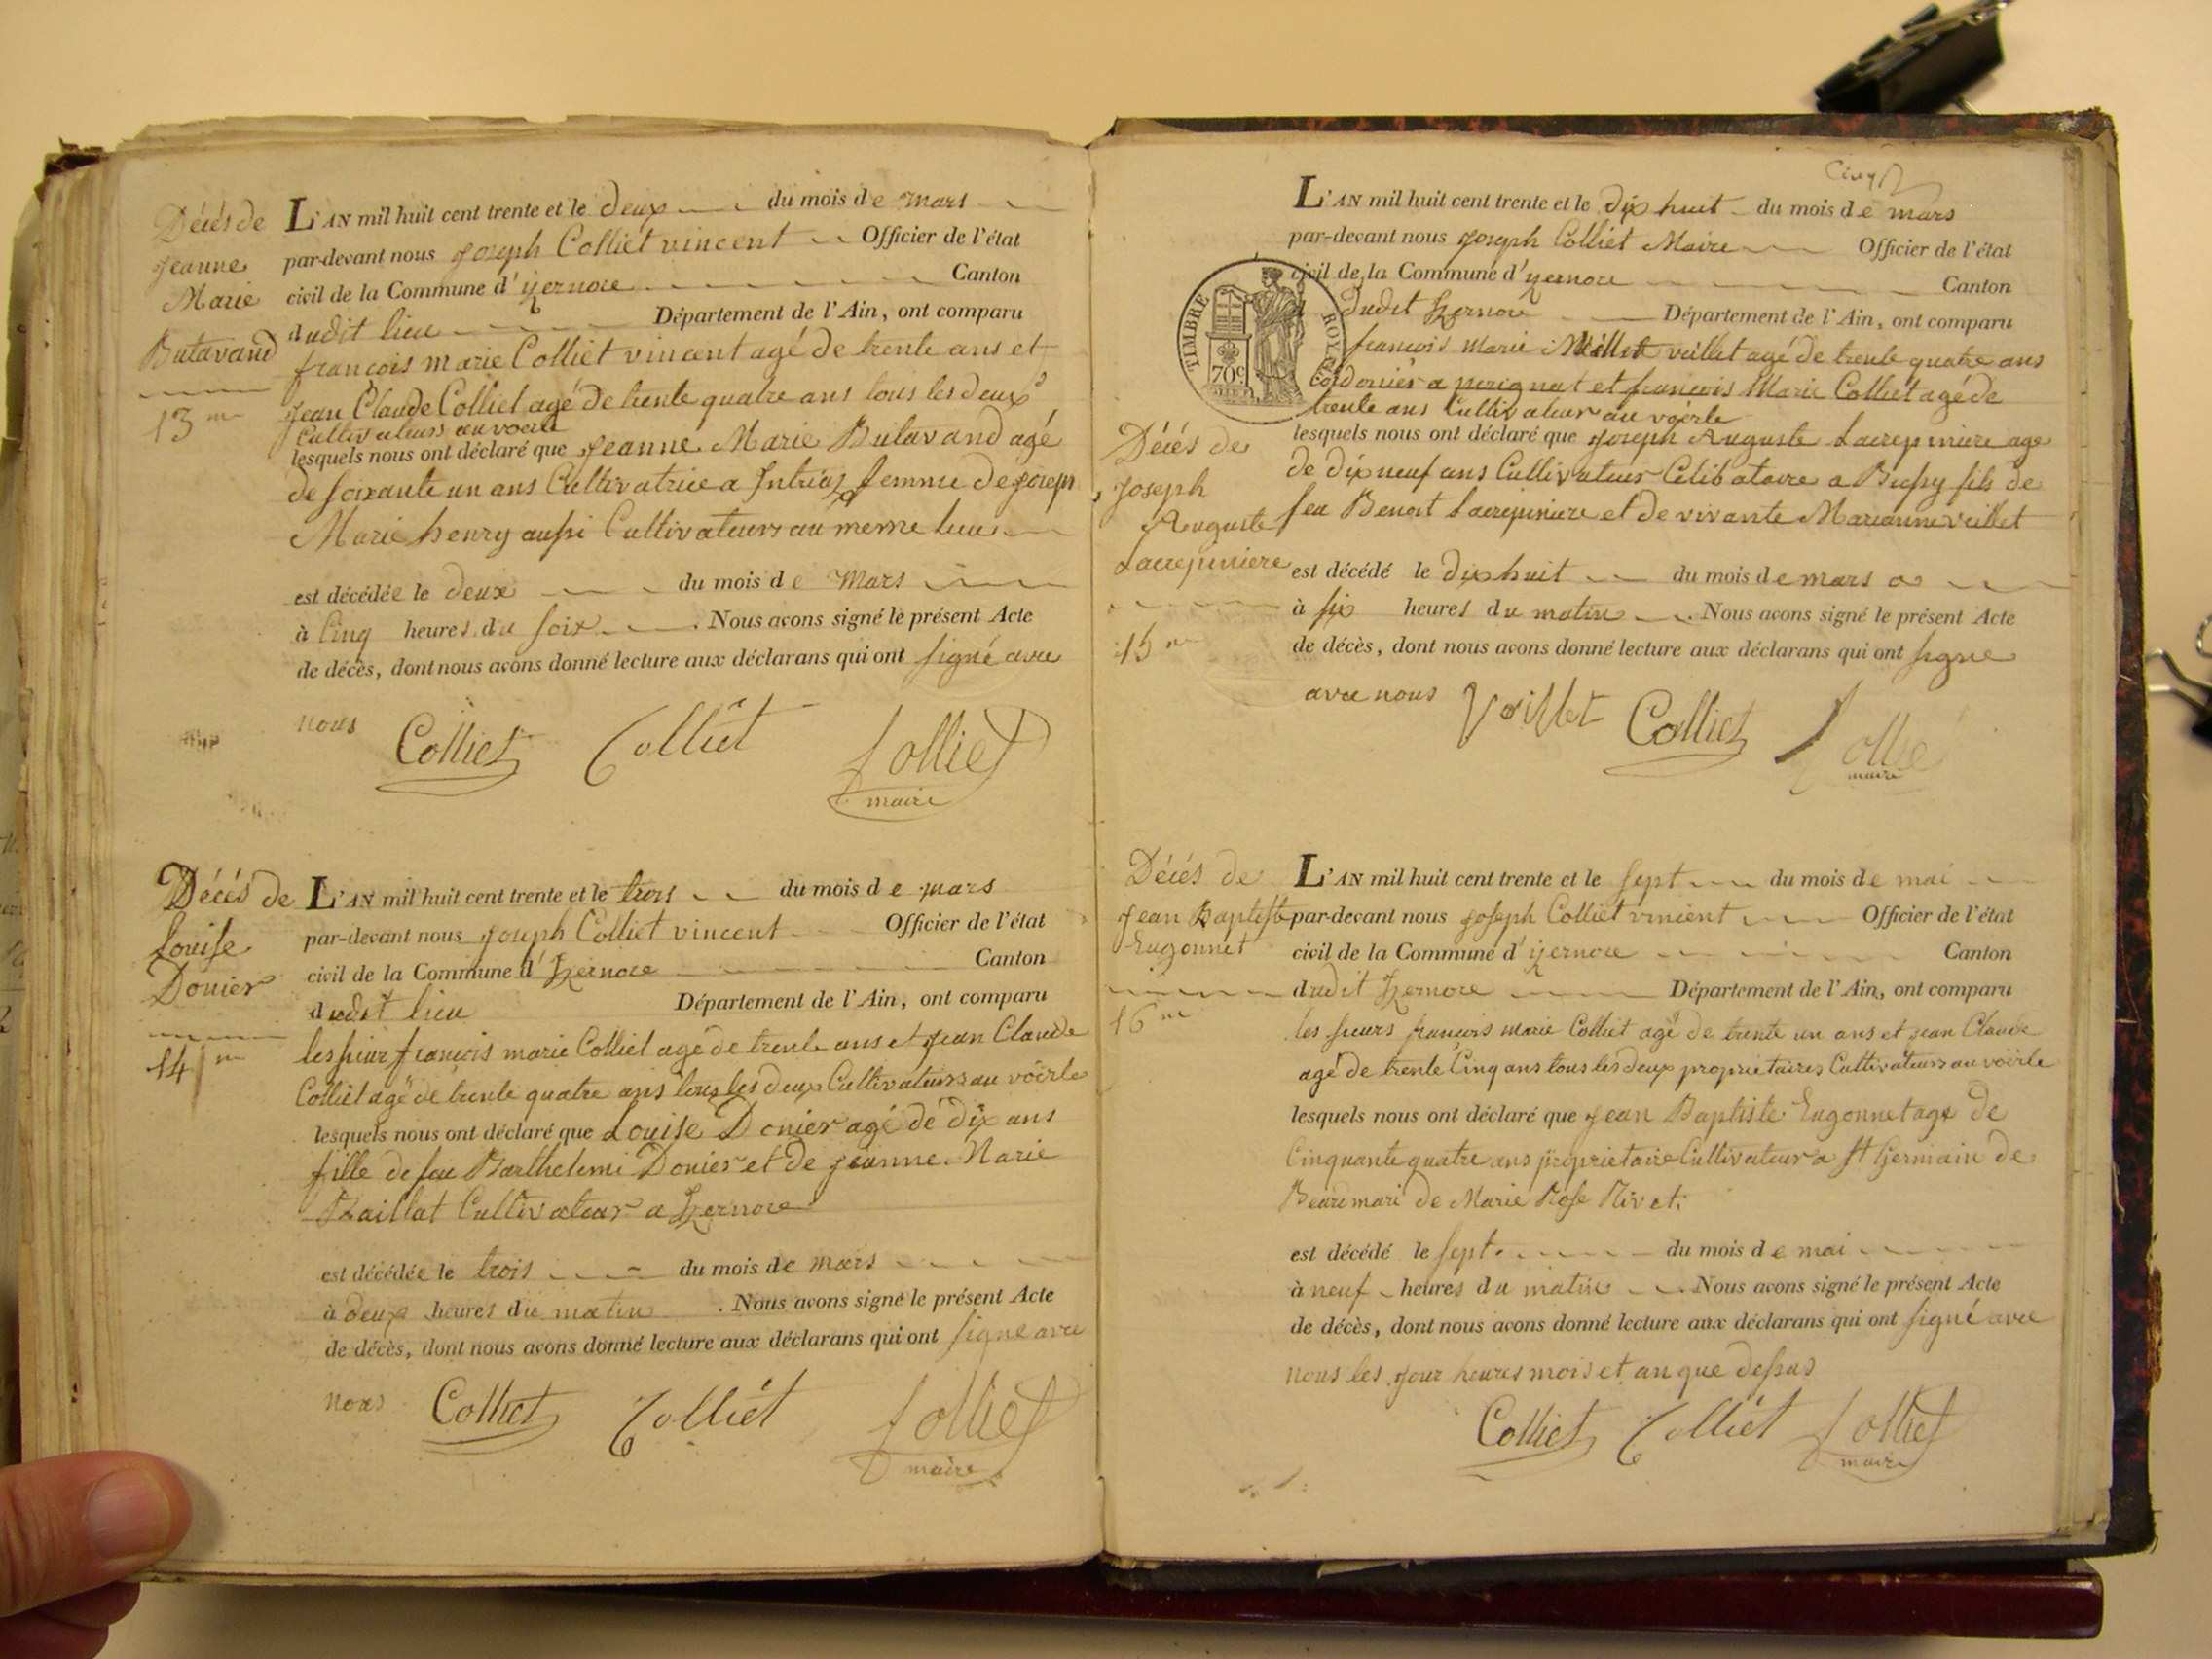 Décés de
Jeanne
Marie
Butavand
13me
L'AN mil huit cent trente et le deux du mois de mars
par-devant nous Joseph Colliet vincent Officier de l'état
civil de la Commune d'izernore Canton
dudit lieu Département de l'Ain, ont comparu
françois marie Colliet vincent agé de trente ans et
Jean Claude Colliet agé de trente quatre ans tous les deux
Cultivateurs au voërle
lesquels nous ont déclaré que Jeanne Marie Butavand agé
de soixante un ans Cultivatrice a Intriaz femme de joseph
Marie henry aussi Cultivateurs au meme lieu
est décédée le deux du mois de Mars
à Cinq heures du soir. Nous avons signé le présent Acte
de décès, dont nous avons donné lecture aux déclarans qui ont signé avec
nous Colliet Colliet Colliet
maire
Décés de
Louise
Donier
14me
L'AN mil huit cent trente et le trois du mois de mars
par-devant nous Joseph Colliet vincent Officier de l'état
civil de la Commune d'Izernore Canton
dudit lieu Département de l'Ain, ont comparu
les sieur françois marie Colliet agé de trente ans et Jean Claude
Colliet agé de trente quatre ans tous les deux Cultivateurs au voërle
lesquels nous ont déclaré que Louise Donier agé de dix ans
fille de feu Barthelemi Donier et de jeanne Marie
Cultivateur a Izernore
est décédée le trois du mois de mars
à deux heures du matin. Nous avons signé le présent Acte
de décès, dont nous avons donné lecture aux déclarans qui ont signé avec
nous Colliet Colliet Colliet
maire
TIMBRE ROYAL
70c
Décés de
Joseph
Auguste
Lacrepiniere
15me
L'AN mil huit cent trente et le dix huit du mois de mars
par-devant nous joseph Colliet Maire Officier de l'état
civil de la Commune d'yzernore Canton
dudit Izernore Département de l'Ain, ont comparu
françois Marie veillet agé de trente quatre ans
Cordonier a perignat et françois Marie Colliet agé de
trente ans Cultivateur au voërle
lesquels nous ont déclaré que joseph Auguste Lacrepiniere age
de dix neuf ans Cultivateur Célibataire a Bussy fils de
feu Benoit Lacrepiniere et de vivante Marianne veillet
est décédé le dix huit du mois de mars
à six heures du matin. Nous avons signé le présent Acte
de décès, dont nous avons donné lecture aux déclarans qui ont signé
avec nous Veillet Colliet Collie
maire
Décés de
Jean Baptiste
Eugonnet
16me
L'AN mil huit cent trente et le sept du mois de mai
par-devant nous joseph Colliet vincent Officier de l'état
civil de la Commune d'izernore Canton
dudit Izernore Département de l'Ain, ont comparu
les sieurs françois marie Colliet agé de trente un ans et jean Claude
agé de trente Cinq ans tous les deux proprietaires Cultivateurs au voërle
lesquels nous ont déclaré que jean Baptiste Eugonnet age de
Cinquante quatre ans proprietaire Cultivateur a st germain de
Beard mari de Marie Rose Rivet
est décédé le sept du mois de mai
à neuf heures du matin. Nous avons signé le présent Acte
de décès, dont nous avons donné lecture aux déclarans qui ont signé avec
nous les jour heures mois et an que dessus
Colliet Colliet Colliet
maire